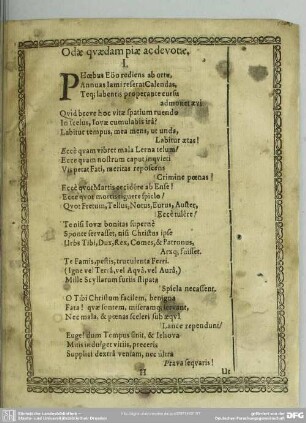 Odæ quædam piæ ac devotæ.
I.
PHœbus Eöo rediens ab ortu,
Annuas Iani reserat Calendas,
Teq; labentis properante cursu
admonet ævi.
Quid breve hoc vitæ spatium ruendo
In scelus, Iovæ cumulabis irā?
Labitur tempus, mea mens, ut unda,
Labitur ætas!
Eccè quam vibret mala Lerna telum!
Ecce quam nostrum caput inquieti
petat Fati, meritas reposcens
Crimine pœnas!
Eccè quot Martis cecidêre ab Ense!
Ecce quot morbus
Quot Fretum, Tellus, Notus, Eurus, Auster,
Eccè tulêre!
Te nisi Iovæ bonitas supernè
Sponte servasset, nisi Christus ipse
Urbs Tibi, Dux, Rex, Comes, & Patronus,
Arxq; fuisset.
Te Famis, pestis, truculenta Ferri,
(Igne vel Terrâ, vel Aquâ, vel Aurâ,)
Mille Scyllarum furiis stipata
Spicla necassent.
O Tibi Christum facilem, benigna
Fata! quæ sontem, miseramq; servant,
Nec mala, & pœnas sceleri sub æqui
Lance rependunt!
Euge! dum Tempus sinit, & Iehova
Mitis indulget vitiis, preceris
Supplici dextrâ veniam, nec ultra
Prava sequaris!
H
Ut